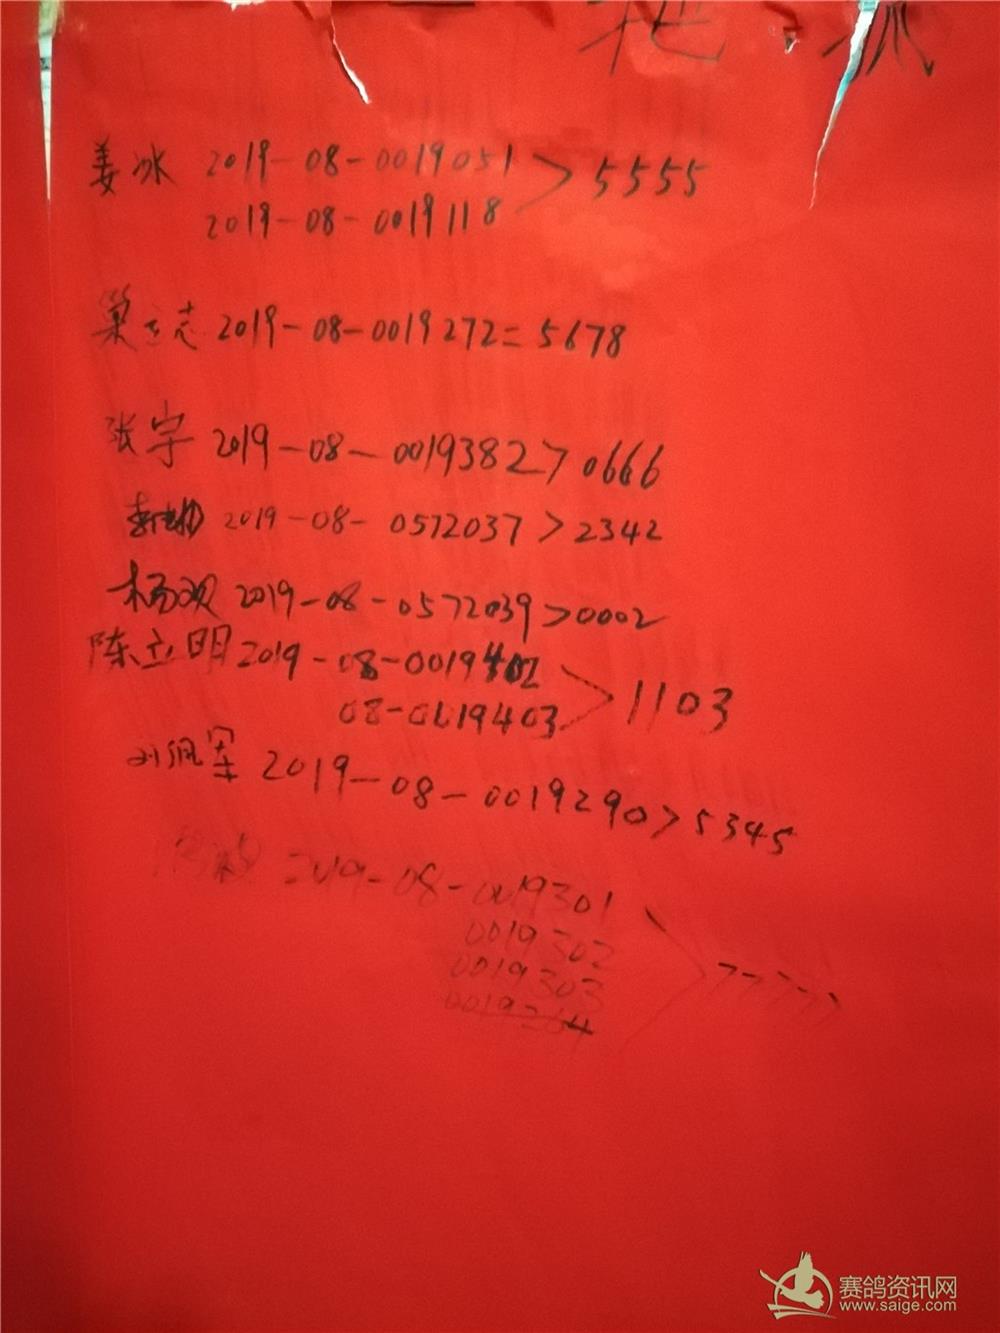 姜冰 2019-08-0019051 > 5555
2019-08-0019118
巢立志 2019-08-0019272=5678
张宇 2019-08-0019382>0666
2019-08-0572037>2342
杨欢 2019-08-0572039>0002
陈立明 2019-08-0019402 > 1103
08-0019403
刘佩军 2019-08-0019290>5345
2019-08-0019301 > 77777
0019302
0019303
赛鸽资讯网
www.saige.com